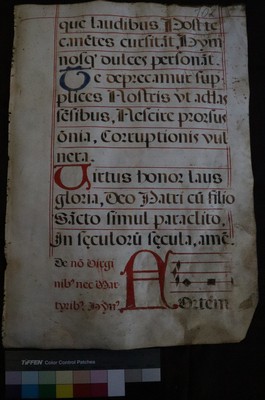 que laudibus Post te
canẽtes cursitãt, Hym
nosq̃ dulces personãt.
Te deprecamur sup
plices Nostris vt addas
sẽsibus, Nescire prorsus
õnia, Corruptionis vul
nera.
Virtus honor laus
gloria, Deo Patri cũ filio
Sãcto simul paraclito,
In sęculorũ sęcula, amẽ.
De nõ Virgi
nibꝰ nec Mar
tyribꝰ. Hỹnꝰ.
AOrtẽm
TIFFEN Color Control Patches